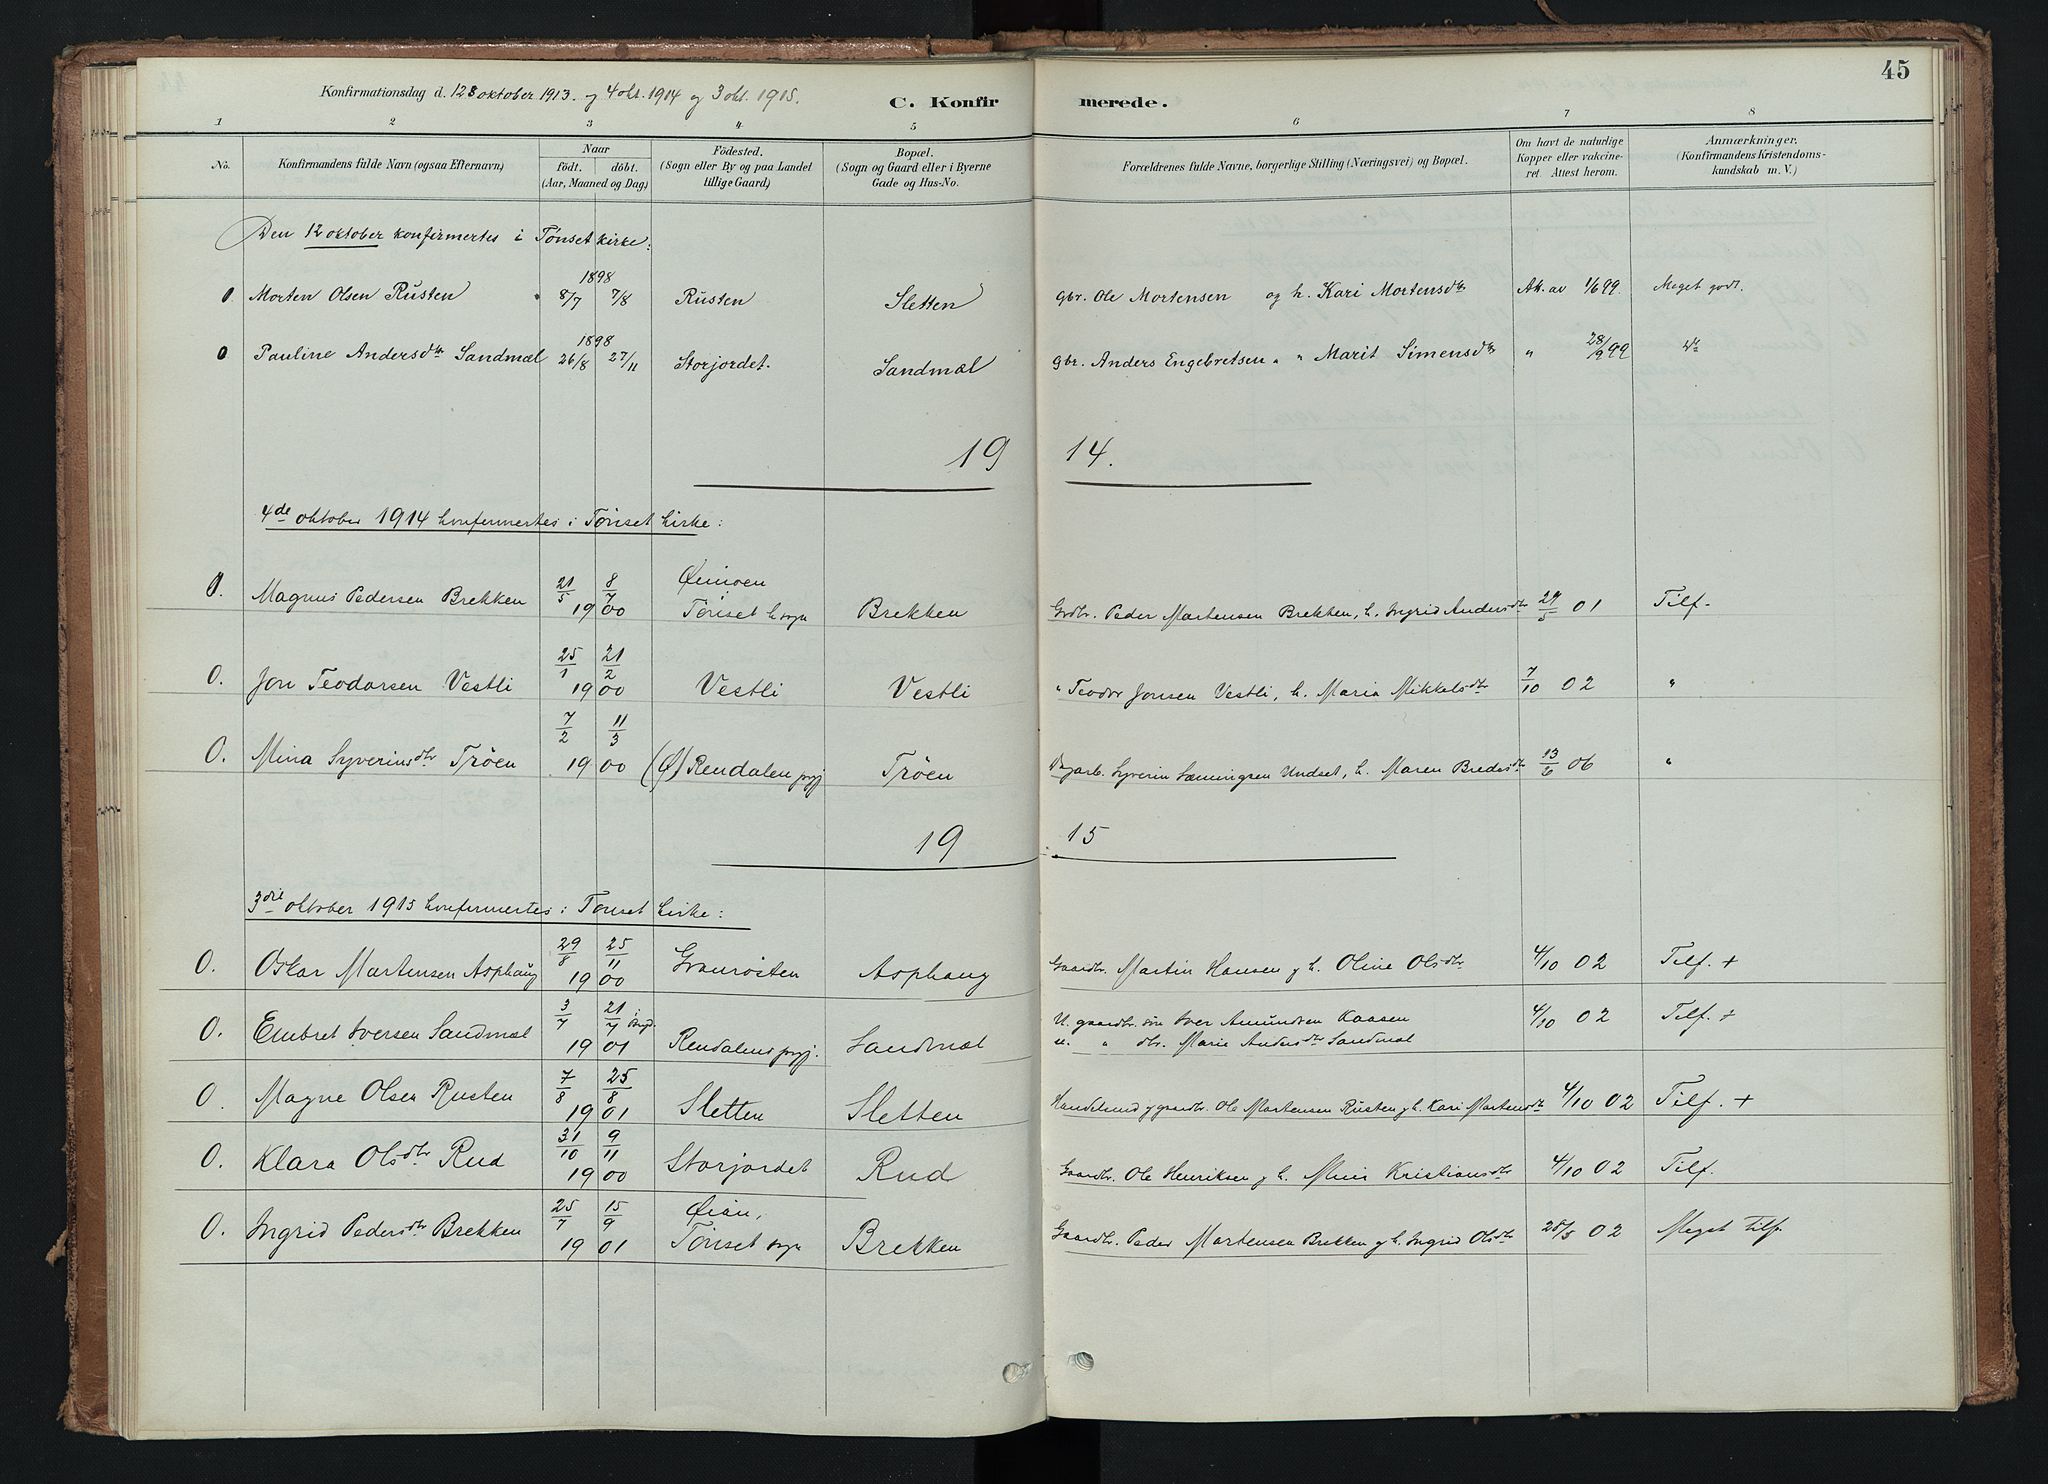 Konfirmationsdag d. 12 oktober 1913. og 4 okt. 1914 og 3 okt. 1915.
C. Konfirmerede.
45
1 2 3 4 5 6 7 8
No.
Konfirmandens fulde Navn (ogsaa Efternavn)
Naar
født. døbt.
(Aar, Maaned og Dag)
Fødested.
(Sogn eller By og paa Landet
tillige Gaard)
Bopæl.
(Sogn og Gaard eller i Byerne
Gade og Hus-No.
Forældrenes fulde Navne, borgerlige Stilling (Næringsvei) og Bopæl.
Om havt de naturlige
Kopper eller vakcine-
ret. Attest herom.
Anmærkninger.
(Konfirmandens Kristendoms-
kundskab m. V.)
Den 12 oktober konfirmertes i Tønset kirke:
1898
0. Morten Olsen Rusten 8/7 7/8 Rusten Sletten gbr. Ole Mortensen og h. Kari Mortensdtr At. av 1/6 99. Meget godt.
1898
0 Pauline Andersdtr Sandmæl 26/8 27/11 Storjordet. Sandmæl gbr. Anders Engebretsen " " Marit Simensdtr " 28/9 99
19 14.
4de oktober 1914 konfermertes i Tønset kirke:
0. Magnus Pedersen Brekken 21/5 8/7 1900 Øimoen Tønset h sogn Brekken Grdbr. Peder Martensen Brekken, h. Ingrid Andersdtr 29/5 01 Tilf.
0. Jon Teodorsen Vestli 25/1 21/2 1900 Vestli Vestli " Teodor Jonsen Vestli, h. Maria Mikkelsdtr 7/10 02 "
0. Mina Syverinsdtr Trøen 7/2 11/3 1900 (Ø) Rendalen prgj Trøen Dagarb. Syverin Sæmingsen Undset, h. Maren Bredesdtr 13/6 06 "
19 15
3die oktober 1915 konfermertes i Tønset kirke:
0. Oskar Martensen Asphaug 29/8 25/11 1900 Graurøsten Asphaug Gaardbr. Martin Hansen g h. Oline Olsdtr 4/10 02 Tilf. +
0. Embret Iversen Sandmæl 3/7 21/7 1901 Rendalens prgj. Sandmæl U. gaardbr. søn Iver Amundsen Kaasen 4/10 02 Tilf. +
u. " dtr. Marie Andersdtr Sandmæl
0. Magne Olsen Rusten 7/8 25/8 1901 Sletten Sletten Handelsmd g gaardbr. Ole Martensen Rusten g h. Kari Martensdtr 4/10 02 Tilf. +
0. Klara Olsdtr Rud 31/10 9/11 1900 Storjordet Rud Gaardbr. Ole Henriksen g h. Mina Kristiansdtr 4/10 02 Tilf.
0. Ingrid Pedersdtr Brekken 25/7 15/9 1901 Øian, Tønset sogn Brekken Gaardbr. Peder Martensen Brekken g h. Ingrid Olsdtr 28/5 02 Meget tilf.